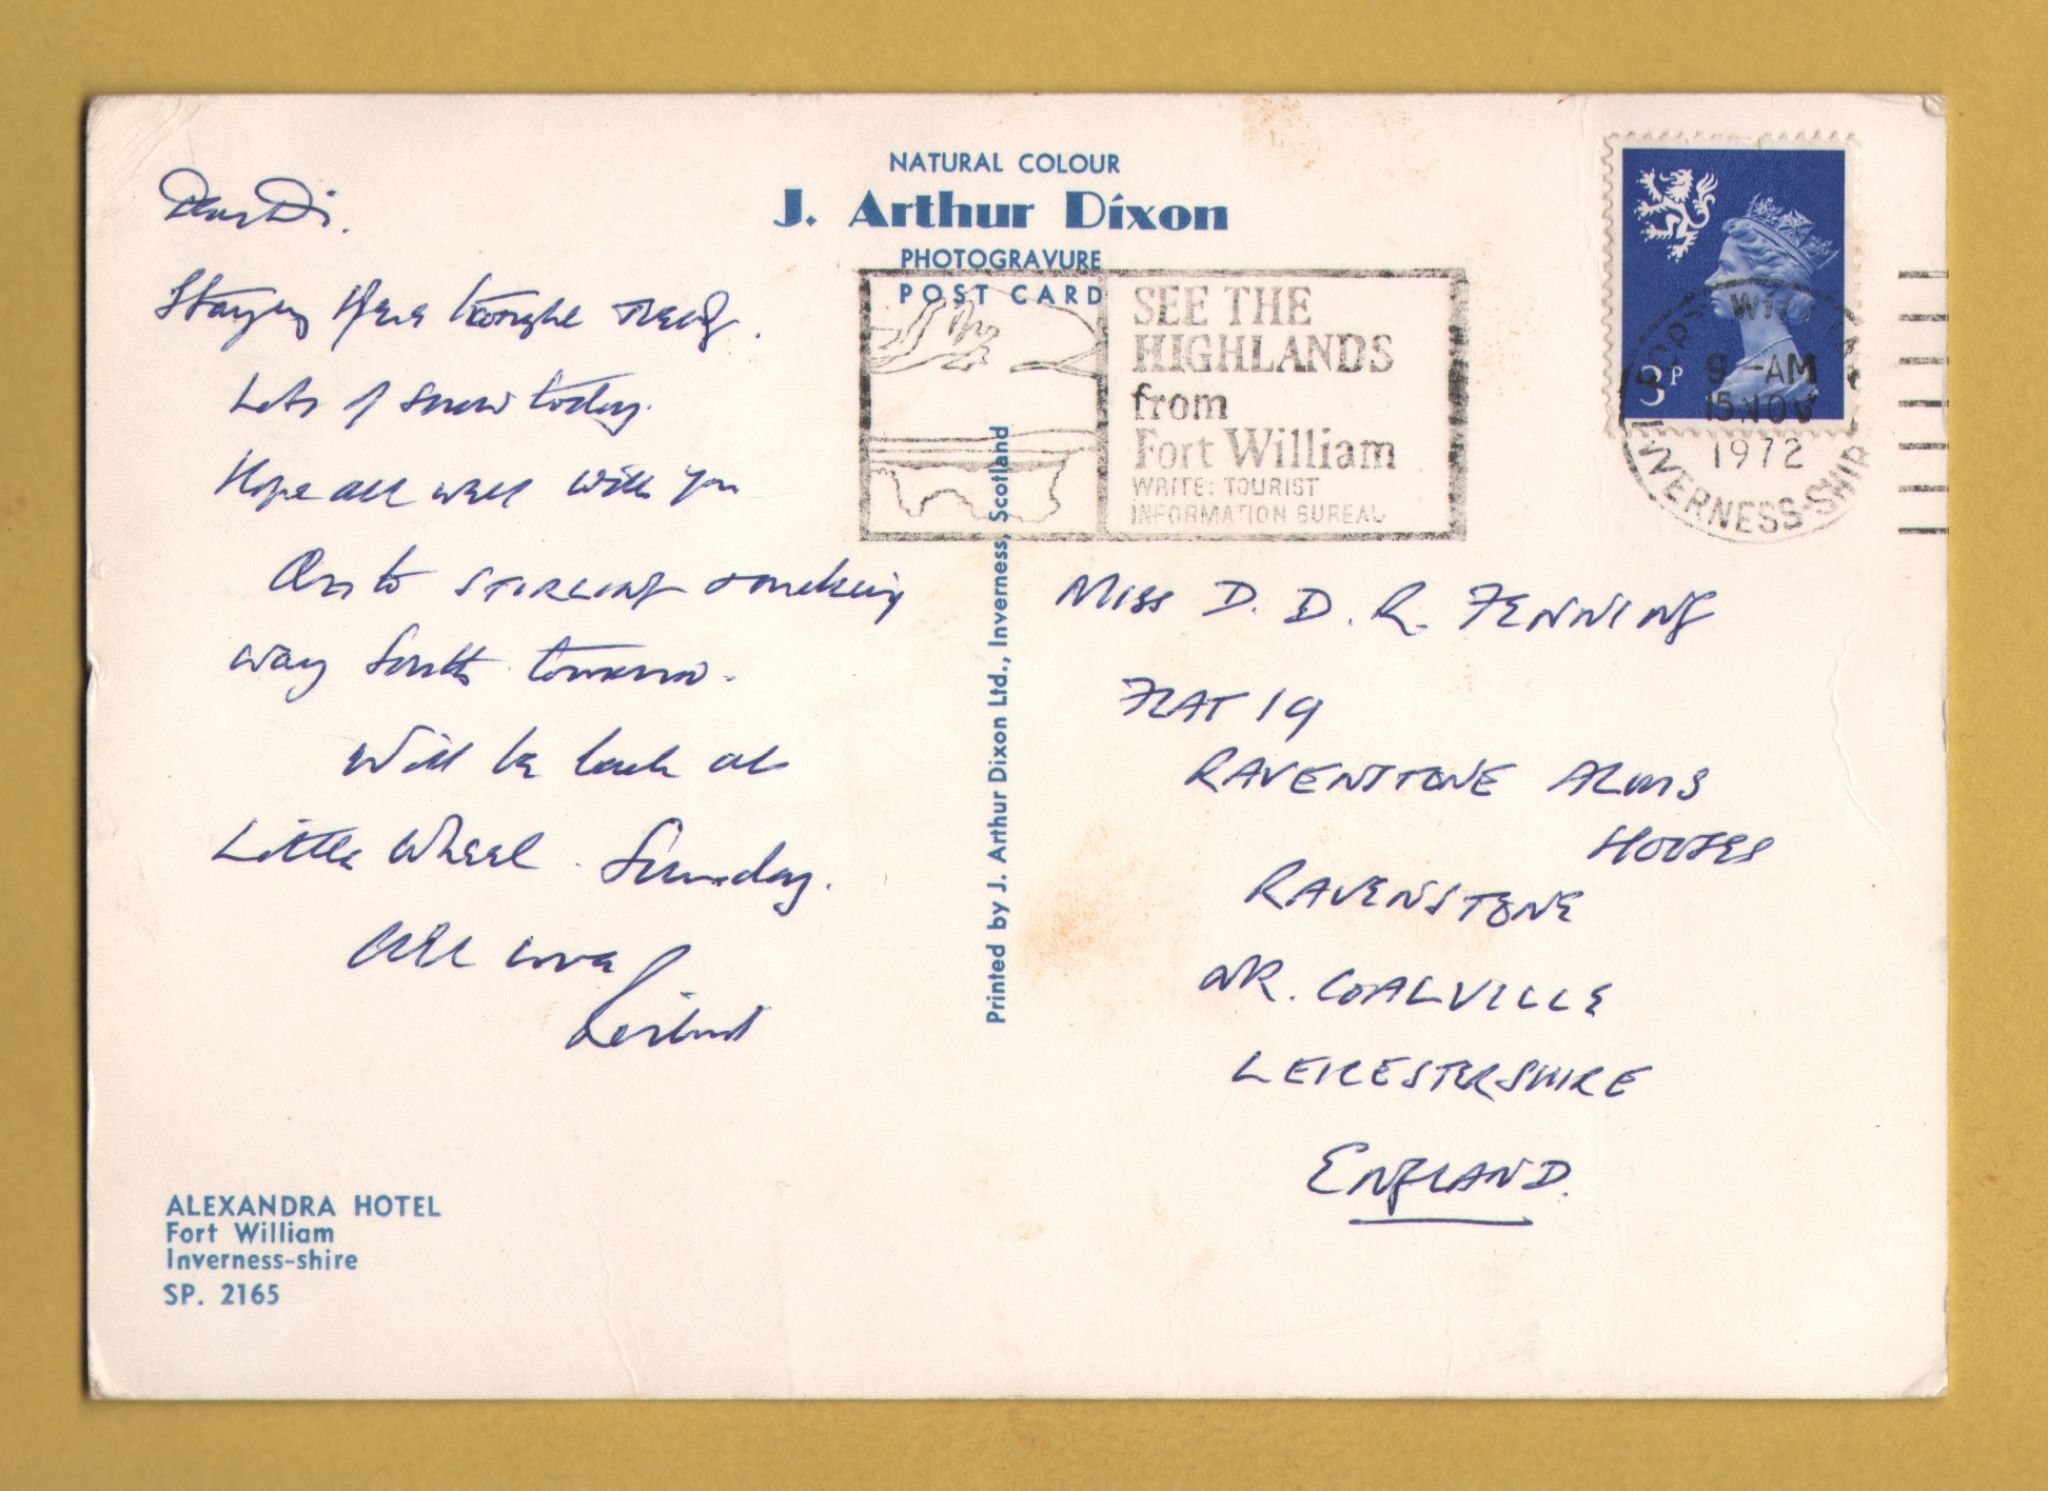 NATURAL COLOUR
J. Arthur Dixon
PHOTOGRAVURE
POST CARD
Dear Di.
Staying Here tonight
Lots of snow today.
Hope all well with you
On to STIRLING
way South tomorrow.
Will be back at
Little Wheel Sunday.
All love
ALEXANDRA HOTEL
Fort William
Inverness-shire
SP. 2165
Printed by J. Arthur Dixon Ltd., Inverness, Scotland
SEE THE
HIGHLANDS
from
Fort William
WRITE: TOURIST
INFORMATION BUREAU
3P
FORT WILLIAM
9 - AM
15 NOV
1972
INVERNESS-SHIRE
MISS D. D. R. FENNING
FLAT 19
RAVENSTONE ALMS
HOUSES
RAVENSTONE
NR. COALVILLE
LEICESTERSHIRE
ENGLAND.